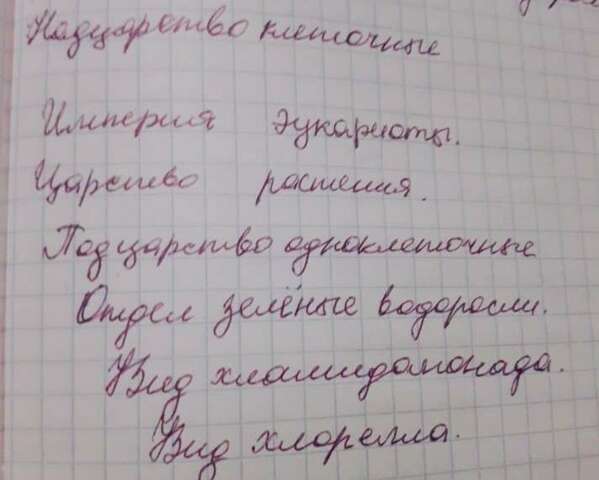 Надцарство клеточные
Империя эукариоты.
Царство растения.
Подцарство одноклеточные
Отдел зелёные водоросли.
Вид хламидомонада.
Вид хлорелла.